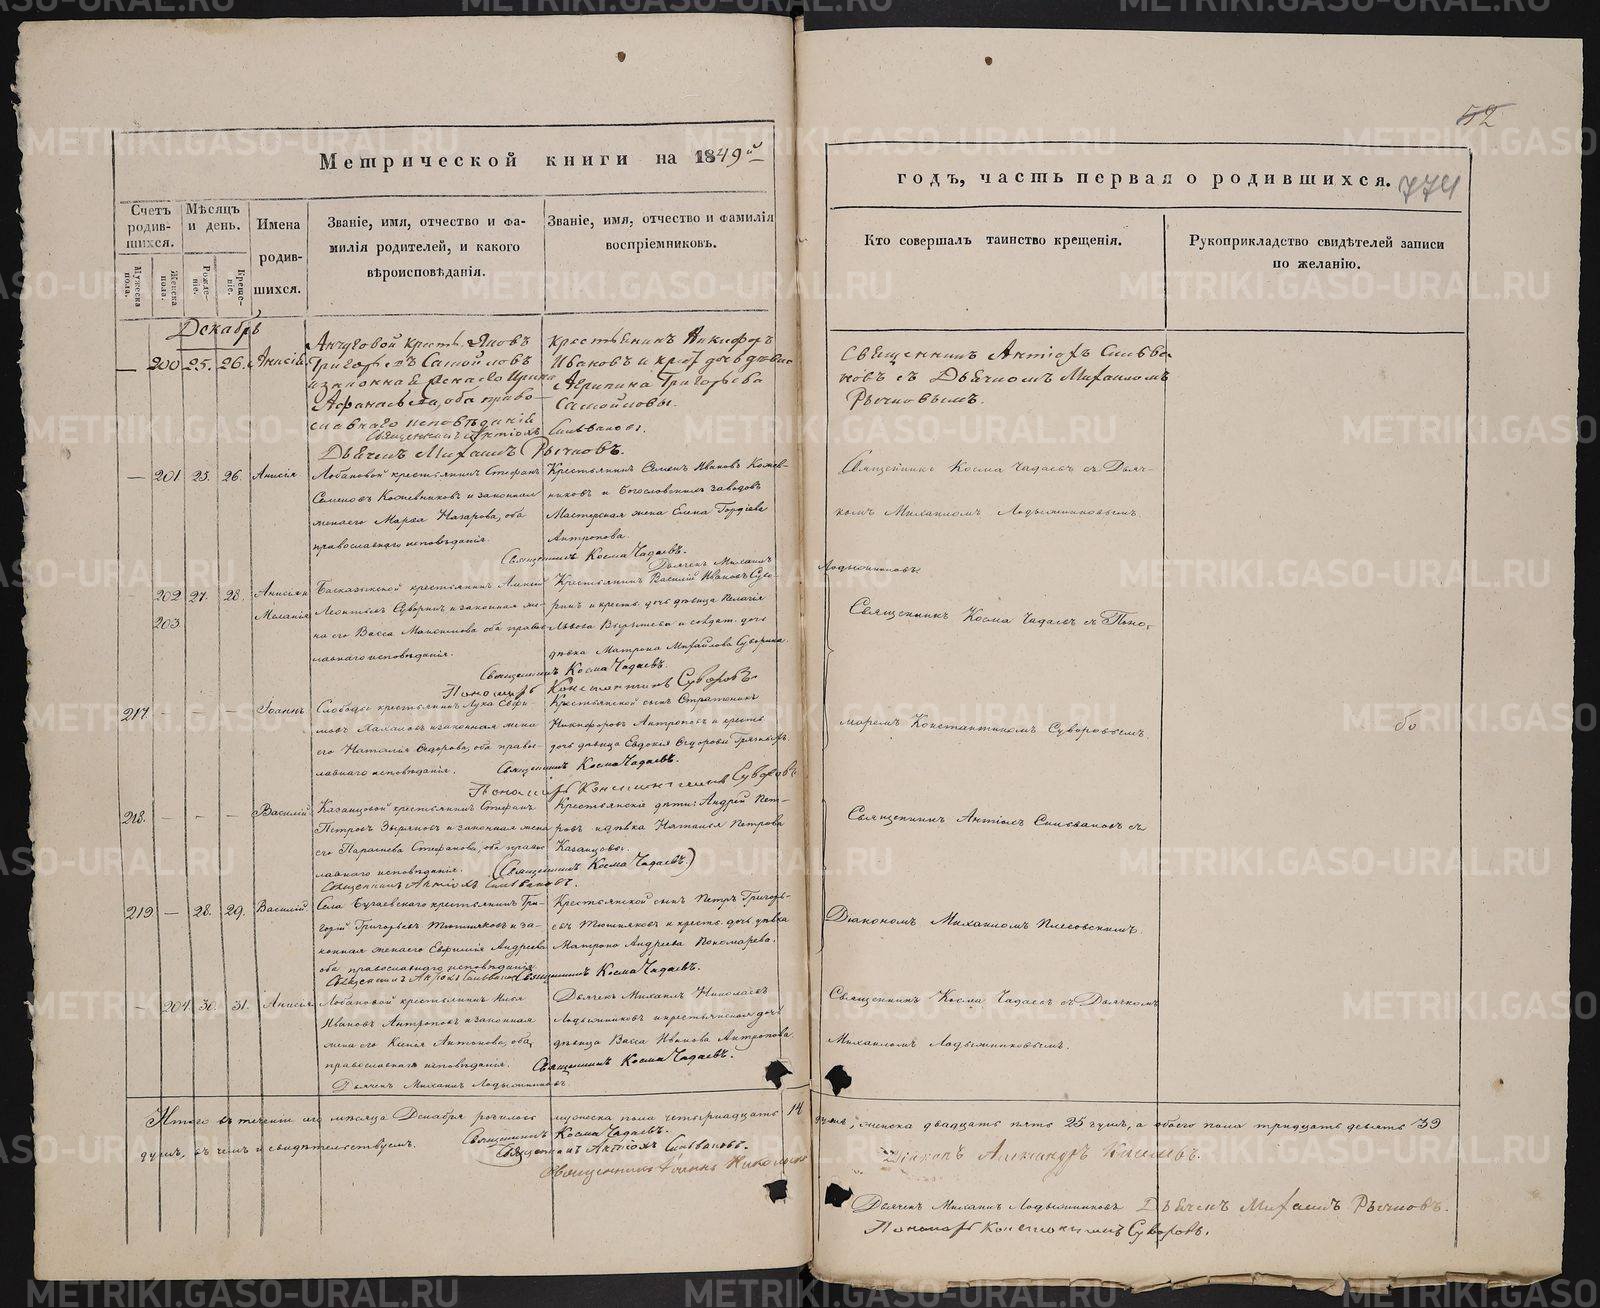 52
Метрической книги на 1849й
годъ, часть первая о родившихся.
774
Счетъ родив- шихся.
Мужеска пола.
Женска пола.
Мѣсяцъ и день.
Рожде- ніе.
Креще- ніе.
Имена родив- шихся.
Званіе, имя, отчество и фа-
милія родителей, и какого
вѣроисповѣданія.
Званіе, имя, отчество и фамилія
воспріемниковъ.
Кто совершалъ таинство крещенія.
Рукоприкладство свидѣтелей записи
по желанію.
Декабрь
— 200 25. 26.
крестьянинъ Никифоръ
Ивановъ и
Агрипина Григорьева
Самойловы.
Афанасьева, оба право-
славнаго исповѣданія
Священникъ Антіохъ Сильвановъ.
Дьячекъ Михаилъ Рычковъ.
Священникъ Антіохъ Сильва-
новъ съ Дьячкомъ Михаиломъ
Рычковымъ.
— 201. 25. 26. Анисія
Лобановой крестьянинъ Стефанъ
Семеновъ Кожевниковъ и законная
жена его Марѳа Назарова, оба
православнаго исповѣданія.
Крестьянинъ Семенъ Ивановъ Кожев-
никовъ и Богословскихъ заводовъ
Мастерская жена Елена Гордіева
Антропова.
Священникъ Косма Чадаевъ.
Дьячекъ Михаилъ
Лодыжниковъ.
Священникъ Косма Чадаевъ съ Дьяч-
комъ Михаиломъ Лодыжниковымъ.
202 27. 28. Анисія и
203 Меланія
крестьянинъ Алексѣй
Леонтьевъ Суворинъ и законная же-
на его Васса Максимова оба право-
славнаго исповѣданія.
Крестьянинъ Василій Ивановъ Суво-
ринъ и крест. дочь дѣвица Пелагія
Львова и солдат. дочь
дѣвка Матрона Михайлова Суворина.
Священникъ Косма Чадаевъ.
Пономарь Константинъ Суворовъ.
Священникъ Косма Чадаевъ съ Поно-
маремъ Константиномъ Суворовымъ.
217. — — — Іоаннъ
Слободы крестьянинъ Лука Ефи-
мовъ и законная жена
его Наталія Ѳедорова, оба право-
славнаго исповѣданія.
Крестьянской сынъ Стратоникъ
Никифоровъ Антроповъ и крестьян.
дочь дѣвица Евдокія Ѳедорова
Священникъ Косма Чадаевъ.
Пономарь Константинъ Суворовъ
218. — — — Василій
Казанцовой крестьянинъ Стефанъ
Петровъ Зыряновъ и законная жена
его Параскева Стефанова, оба право-
славнаго исповѣданія.
Крестьянскіе дѣти: Андрей Пет-
ровъ и дѣвка Наталья Петрова
Казанцовы.
(Священникъ Косма Чадаевъ.)
Священникъ Антіохъ Сильвановъ.
Священникъ Антіохъ Сильвановъ съ
Діакономъ Михаиломъ
219 — 28. 29. Василій
Села Бугаевскаго крестьянинъ Гри-
горій Григорьевъ Тюшняковъ и за-
конная жена его Евфимія Андреева
оба православнаго исповѣданія.
Крестьянской сынъ Петръ Григорь-
евъ Тюшняковъ и крест. дочь дѣвка
Матрона Андреева Пономарева.
Священникъ Антіохъ Сильвановъ Священникъ Косма Чадаевъ.
— 204 30. 31. Анисія
Лобановой крестьянинъ Илья
Ивановъ Антроповъ и законная
жена его Ксенія Антонова, оба
православнаго исповѣданія.
Дьячекъ Михаилъ Николаевъ
Лодыжниковъ и крестьянская дочь
дѣвица Васса Иванова Антропова.
Священникъ Косма Чадаевъ.
Дьячекъ Михаилъ Лодыжниковъ.
Священникъ Косма Чадаевъ съ Дьячкомъ
Михаиломъ Лодыжниковымъ.
Итого въ теченіи сего мѣсяца Декабря родилось мужеска пола четырнадцать 14
душъ, женска двадцать пять 25 душъ, а обоего пола тридцать девять 39
душъ, въ чемъ и свидѣтельствуемъ.
Священникъ Косма Чадаевъ.
Священникъ Антіохъ Сильвановъ.
Священникъ
Діаконъ Александръ Киселевъ.
Дьячекъ Михаилъ Лодыжниковъ Дьячекъ Михаилъ Рычковъ.
Пономарь Константинъ Суворовъ.
METRIKI.GASO-URAL.RU